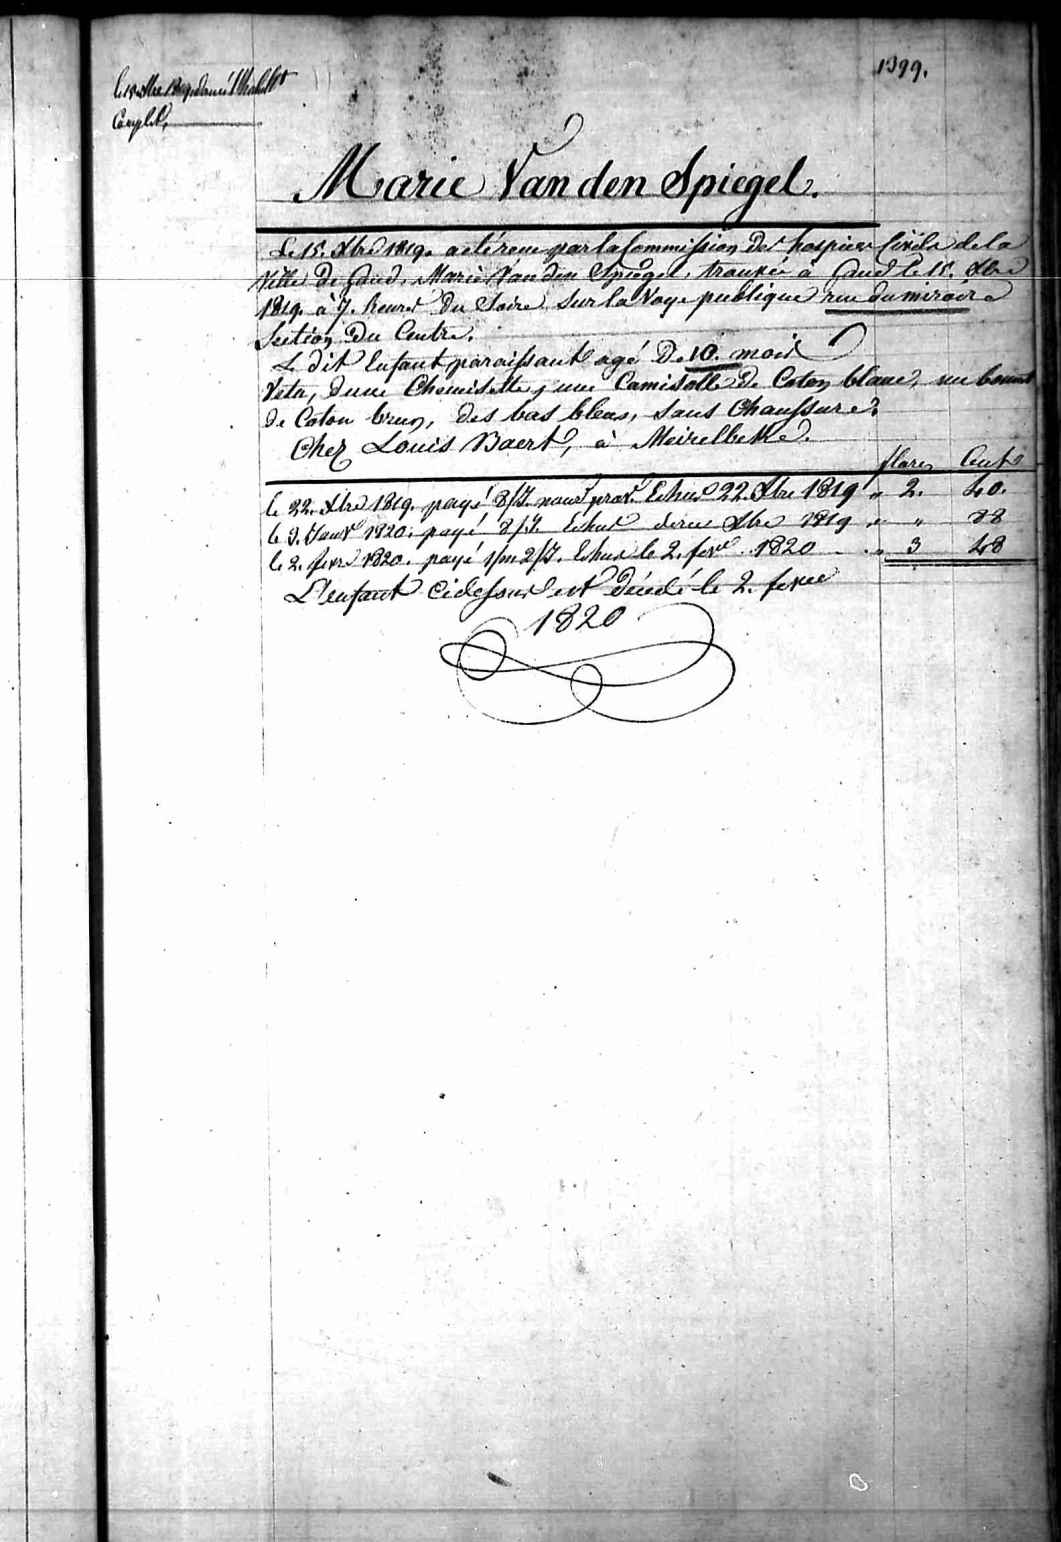 1399.
le 15 Xbre 1819 donné l'habillt
Complet,
Marie Van den Spiegel.
Le 15. Xbre 1819. a eté recue par la Commission des hospices Civils de la
Ville de Gand, Marie Van den Spiegel, trouvée à Gand le 15. Xbre
1819. à 7. heures du Soire sur la Voye publique rue du miroire
Section du Centre.
Le dit Enfant paraissant agé De 10. mois
Vetu, d'une Chemisette, une Camisolle de Coton blanc, un bonnet
de Coton brun, des bas bleus, sans Chaussure.
Chez Louis Baert, à Meirelbeke.
flors Cents
le 22. Xbre 1819. payé 8/J. nourre prov. Echus 22. Xbre 1819 " 2. 40.
le 3. Janvr 1820. payé 8/J. Echus dernier Xbre 1819 " " 88
le 2. fevre 1820. payé 1/m 2/J. Echus le 2. fevre 1820 " 3 48
L'enfant cidessus est décédé le 2. fevre
1820